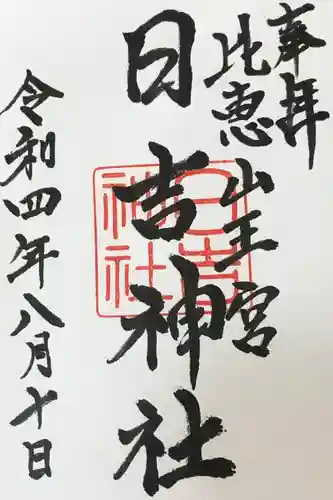 奉拝
比恵
山王宮
日吉神社
令和四年八月十日
日吉
神社